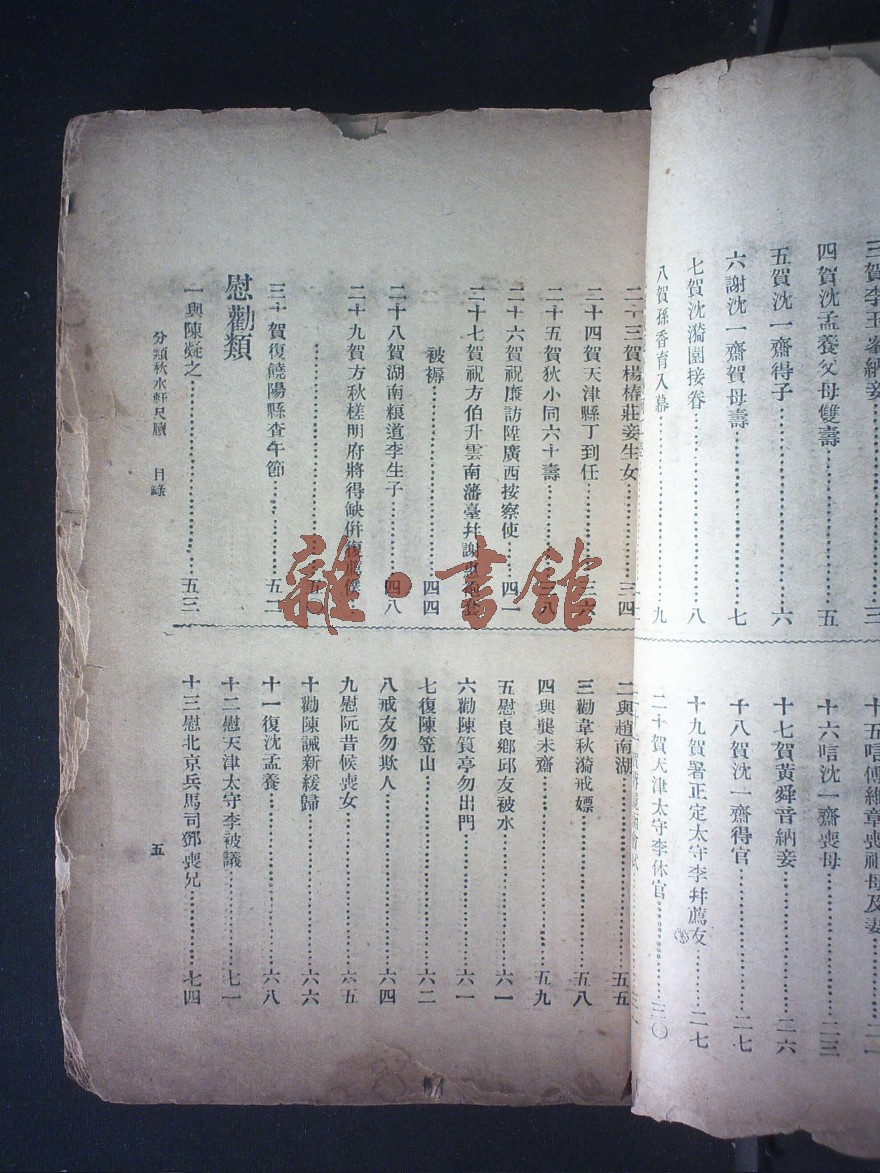 三賀李玉峯納妾⋯⋯三
四賀沈孟養父母雙壽⋯⋯五
五賀沈一齋得子⋯⋯六
六謝沈一齋賀母壽⋯⋯七
七賀沈漪園接眷⋯⋯八
八賀孫香育入幕⋯⋯九
十五唁傅維章喪祖母及妻⋯⋯二一
十六唁沈一齋喪母⋯⋯二三
十七賀黃舜音納妾⋯⋯二六
十八賀沈一齋得官⋯⋯二七
十九賀署正定太守李幷薦友⋯⋯二七
二十賀天津太守李休官⋯⋯三〇
二十三賀楊椿莊妾生女⋯⋯三四
二十四賀天津縣丁到任⋯⋯三六
二十五賀狄小同六十壽⋯⋯三八
二十六賀祝廉訪陞廣西按察使⋯⋯四一
二十七賀祝方伯升雲南藩臺幷謝惠袍套
被褥⋯⋯四四
二十八賀湖南糧道李生子⋯⋯四八
二十九賀方秋槎明府將得缺倂復歲候
⋯⋯五一
三十賀復饒陽縣查午節⋯⋯五二
慰勸類
一與陳凝之⋯⋯五三
二與趙南湖⋯⋯五五
三勸韋秋漪戒嫖⋯⋯五八
四與龔未齋⋯⋯五九
五慰良鄉邱友被水⋯⋯六一
六勸陳質亭勿出門⋯⋯六一
七復陳笠山⋯⋯六二
八戒友勿欺人⋯⋯六四
九慰阮昔候喪女⋯⋯六五
十勸陳誠新緩歸⋯⋯六六
十一復沈孟養⋯⋯六八
十二慰天津太守李被議⋯⋯七一
十三慰北京兵馬司鄧喪兄⋯⋯七四
分類秋水軒尺牘 目錄
五
雜·書館